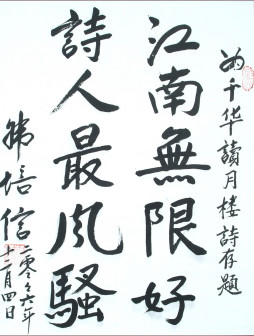 为千华讀月楼詩存題
江南無限好
詩人最风騷
韩培信
二零零六年
十二月四日